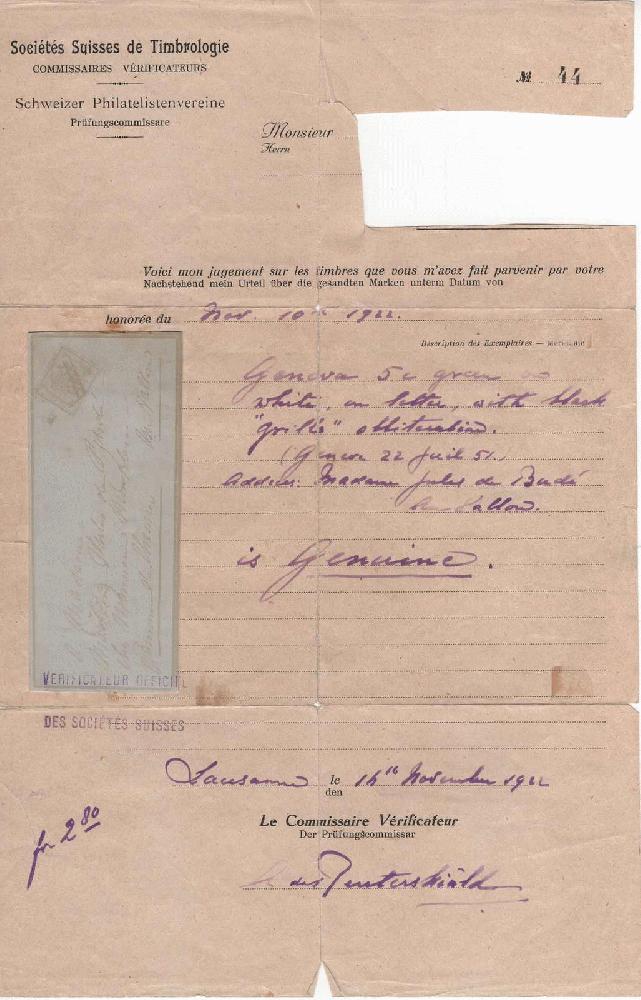 Sociétés Suisses de Timbrologie
COMMISSAIRES VÉRIFICATEURS
Schweizer Philatelistenvereine
Prüfungscommissare
№ 44
Monsieur
Herrn
Voici mon jugement sur les timbres que vous m'avez fait parvenir par votre
Nachstehend mein Urteil über die gesandten Marken unterm Datum von
honorée du Nov. 10th 1922.
Description des Exemplaires —
Geneva 5c green on
white, on letter, with black
"grille" obliteration.
(Geneva 22 Juil 51.
Address: Madame Jules de Budé
au Sallon.
is Genuine.
VÉRIFICATEUR OFFICIEL
DES SOCIÉTÉS SUISSES
Lausanne le 14th November 1922
den
Le Commissaire Vérificateur
Der Prüfungscommissar
fr 2.80
de Reuterskiöld